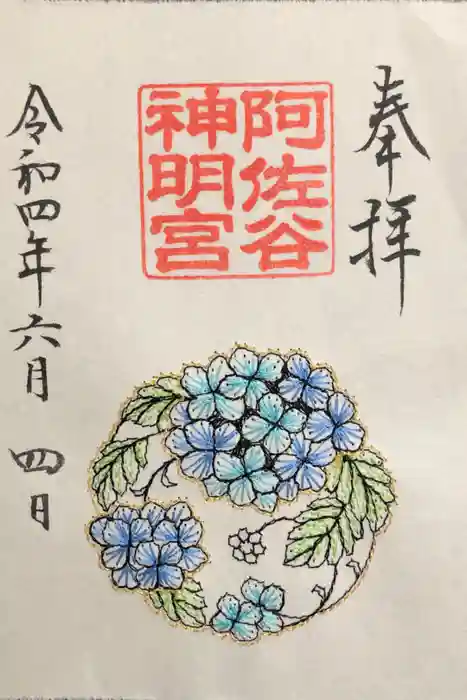 奉拝
阿佐谷
神明宮
令和四年六月四日